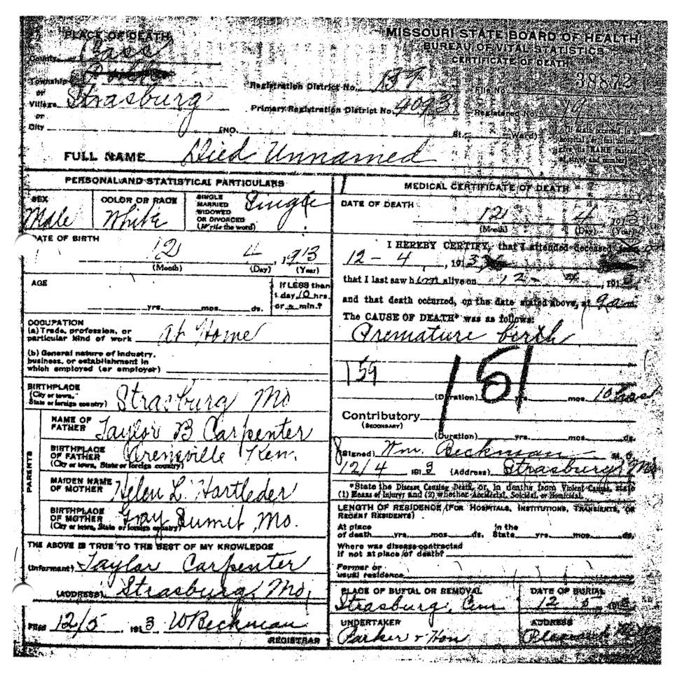 MISSOURI STATE BOARD OF HEALTH
BUREAU OF VITAL STATISTICS
CERTIFICATE OF DEATH
PLACE OF DEATH
County Cass
Township
or
Village Strasburg
or
City (NO. St. Ward)
Registration District No. 137
File No. 38872
Primary Registration District No. 4093
Registered No. 19
FULL NAME Died Unnamed
PERSONAL AND STATISTICAL PARTICULARS
SEX
Male
COLOR OR RACE
White
SINGLE
MARRIED
WIDOWED
OR DIVORCED
(Write the word)
Single
DATE OF BIRTH
12 4 1913
(Month) (Day) (Year)
AGE
yrs. mos. ds.
If LESS than
1 day, 10 hrs.
or min.?
OCCUPATION
(a) Trade, profession, or
particular kind of work At Home
(b) General nature of industry,
business, or establishment in
which employed (or employer)
BIRTHPLACE
(City or town,
State or foreign country) Strasburg Mo
PARENTS
NAME OF
FATHER Taylor B Carpenter
BIRTHPLACE
OF FATHER
(City or town, State or foreign country) Ken.
MAIDEN NAME
OF MOTHER Helen L. Hartleder
BIRTHPLACE
OF MOTHER
(City or town, State or foreign country) Gray Sumit, Mo.
THE ABOVE IS TRUE TO THE BEST OF MY KNOWLEDGE
(Informant) Taylor Carpenter
(ADDRESS) Strasburg, Mo,
Filed 12/5 1913 W Beckman
REGISTRAR
MEDICAL CERTIFICATE OF DEATH
DATE OF DEATH
12 4 191
(Month) (Day) (Year)
I HEREBY CERTIFY, that I attended deceased from
12-4 1913
that I last saw him alive on 12-4, 1913
and that death occurred, on the date stated above, at 9 a m.
The CAUSE OF DEATH* was as follows:
Premature birth
159
151
(Duration) yrs. mos. 10
Contributory
(SECONDARY)
(Duration) yrs. mos. ds.
(Signed) Wm. Beckman M. D.
12/4 1913 (Address) Strasburg, Mo
*State the Disease Causing Death, or, in deaths from Violent Causes, state
(1) Means of Injury; and (2) whether Accidental, Suicidal, or Homicidal.
LENGTH OF RESIDENCE (FOR HOSPITALS, INSTITUTIONS, TRANSIENTS, OR
RECENT RESIDENTS)
At place
of death yrs. mos. ds.
In the
State yrs. mos. ds.
Where was disease contracted
if not at place of death?
Former or
usual residence
PLACE OF BURIAL OR REMOVAL
Strasburg, Cem
DATE OF BURIAL
12 5 1913
UNDERTAKER
Parker & Hon
ADDRESS